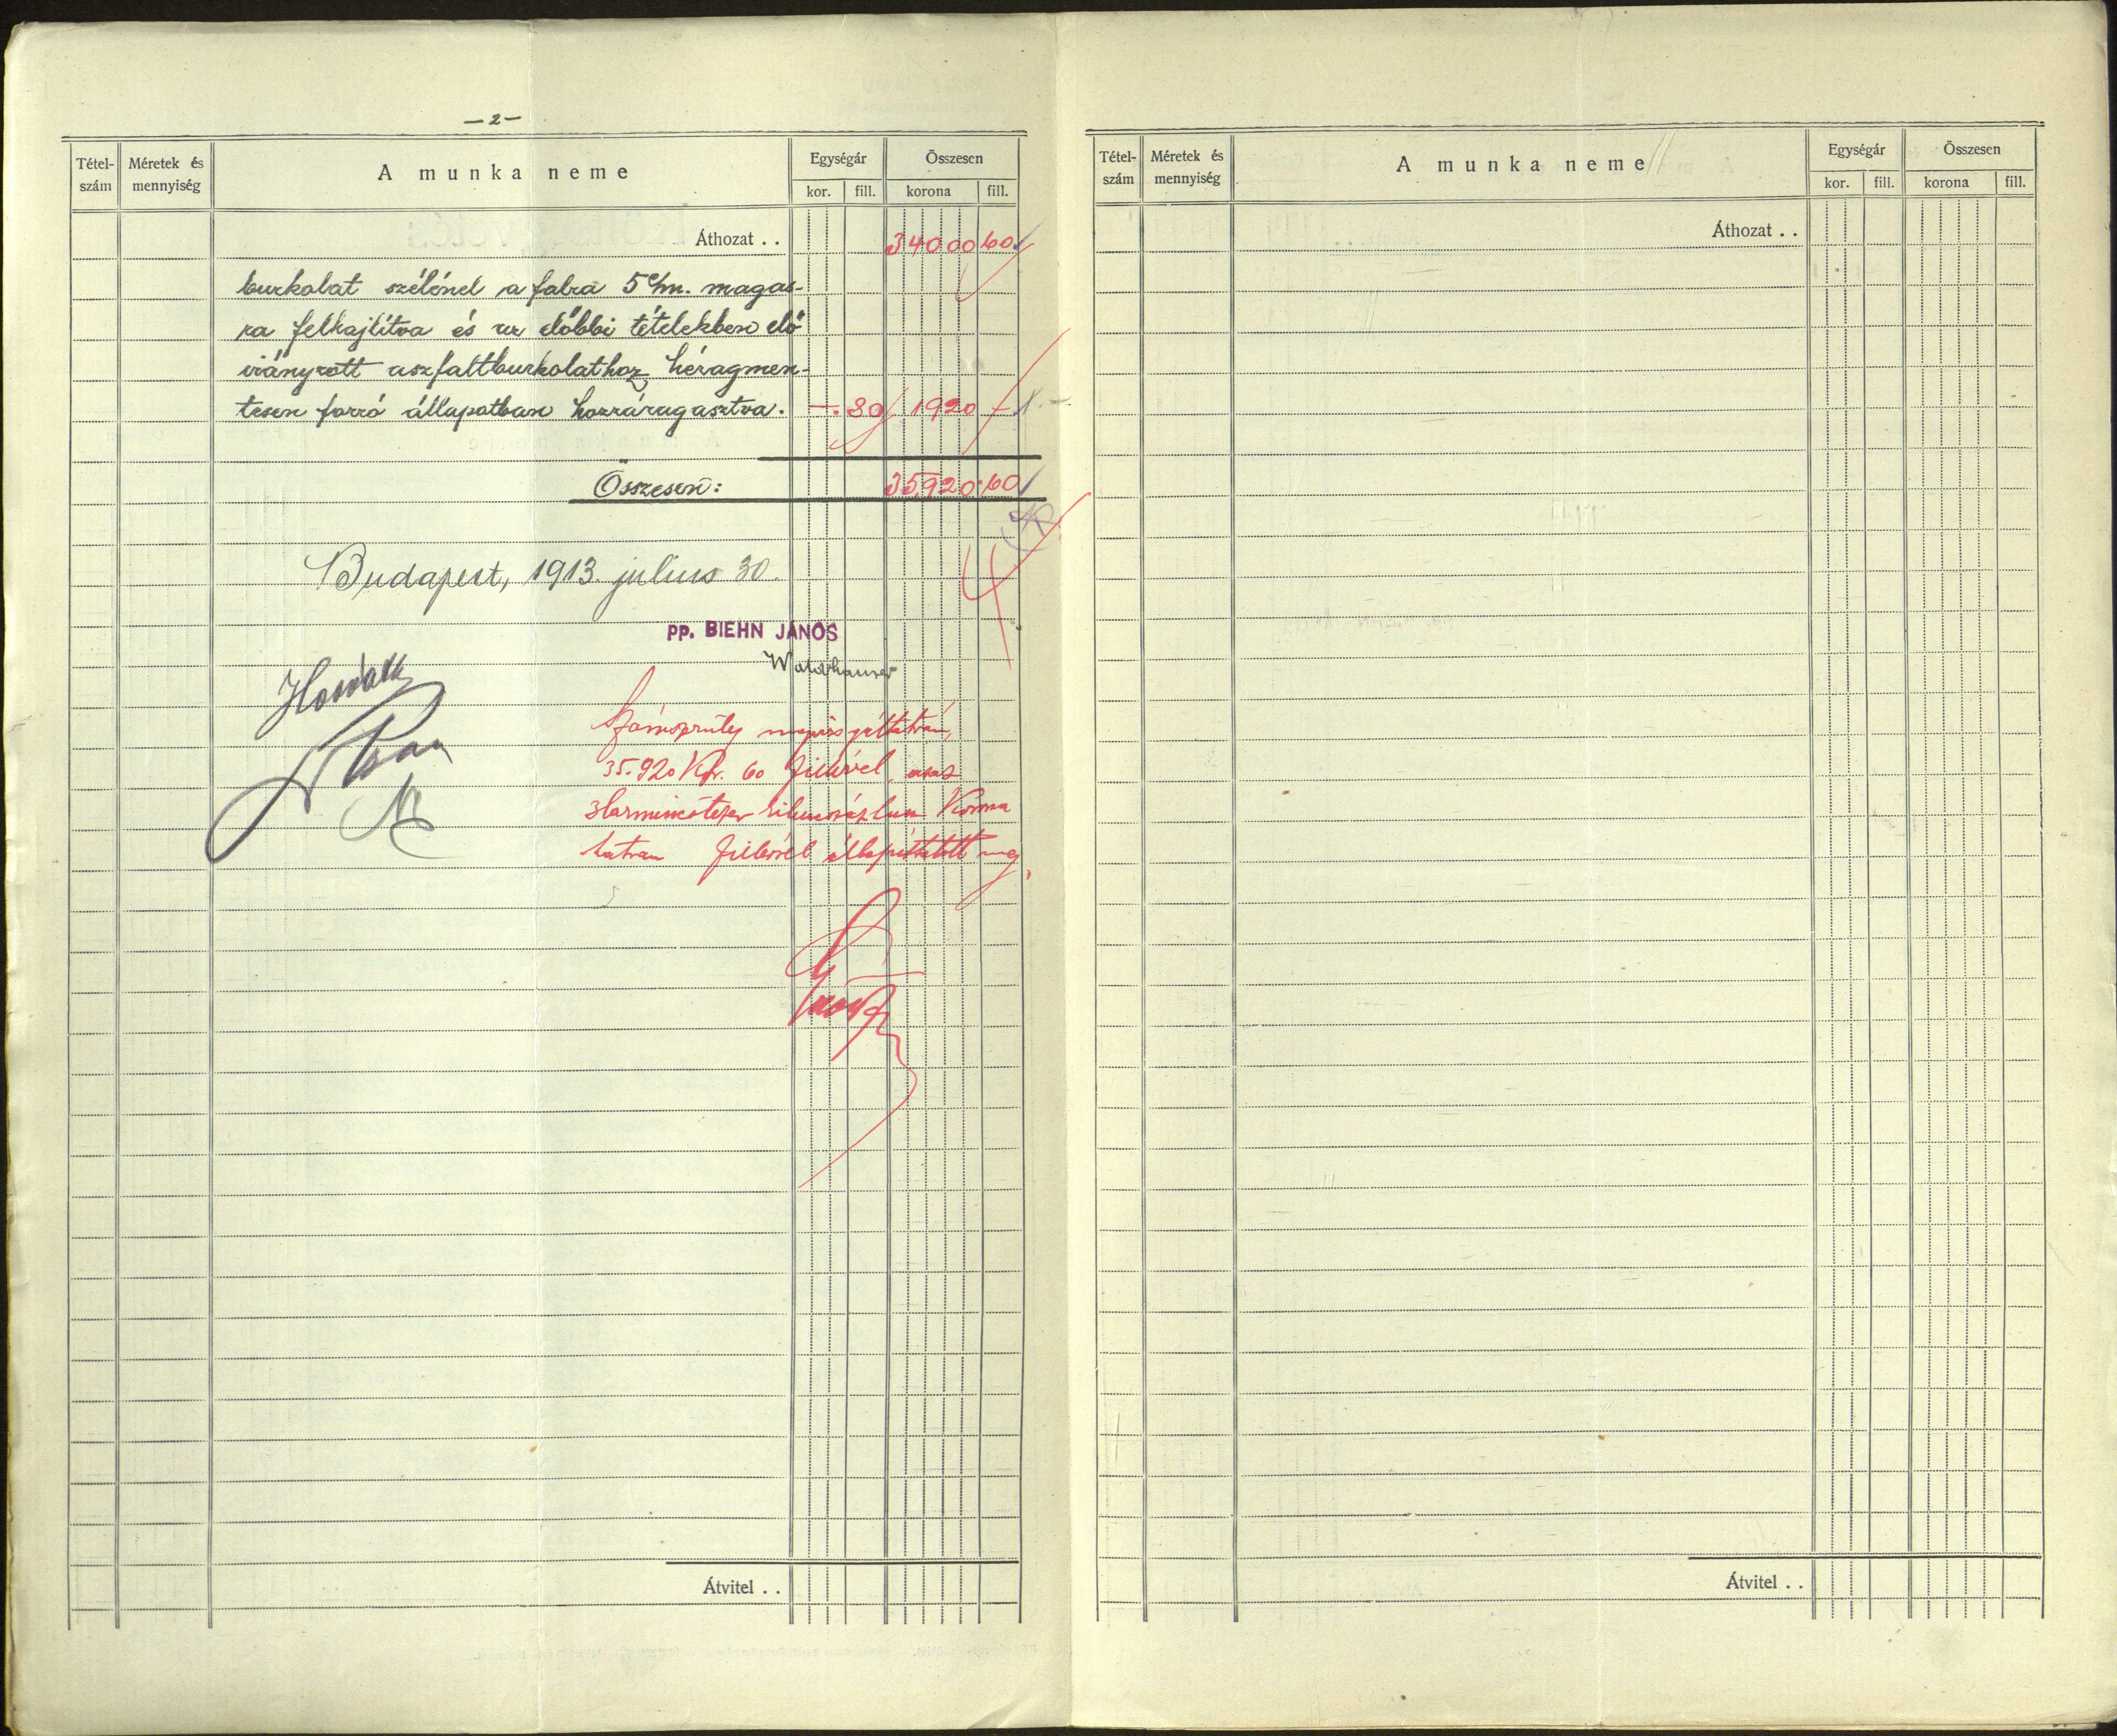 —2—
Tétel-szám Méretek és mennyiség A munka neme Egységár kor. fill. Összesen korona fill.
Áthozat . . 34000 60
burkolat szélénél a falra 5 c/m. magas-
ra felhajlítva és az előbbi tételekben elő
irányzott aszfaltburkolathoz hézagmen-
tesen forró állapotban hozzáragasztva. —. 80 1920 —
Összesen: 35920 60
Budapest, 1913. július 30.
pp. BIEHN JÁNOS
Horváth
Számszerűleg megvizsgáltatván,
35.920 Kor. 60 fillérrel, azaz
Harmincötezer kilencszázhusz Korona
hatvan fillérrel állapíttatott meg.
Átvitel . .
Tétel-szám Méretek és mennyiség A munka neme Egységár kor. fill. Összesen korona fill.
Áthozat . .
Átvitel . .